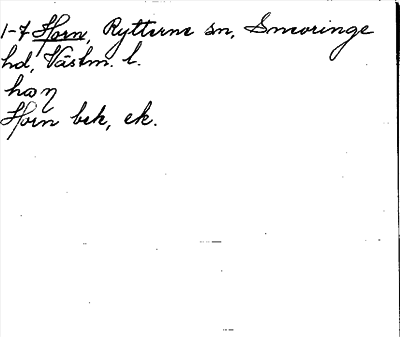 1-7 Horn, Rytterne sn, Snevringe
hd, Västm. l.
hoɳ
Horn bek, ek.